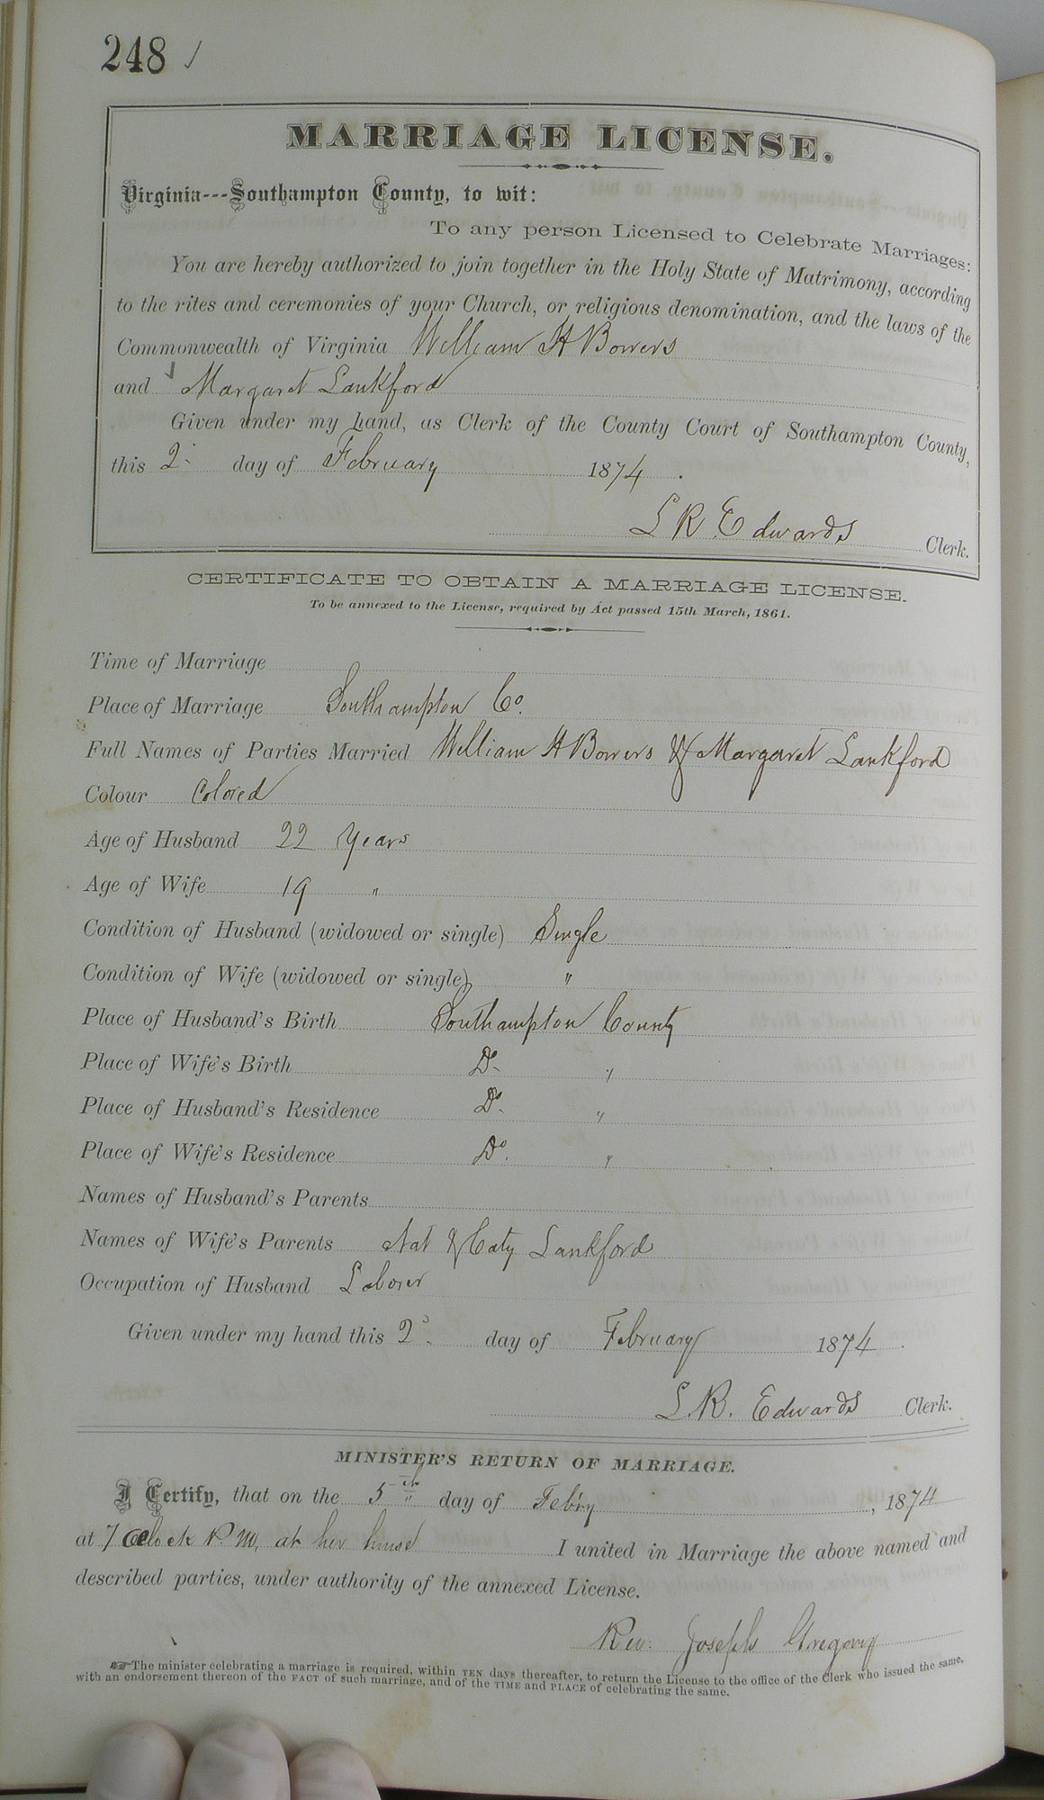 248 ✓
MARRIAGE LICENSE.
Virginia---Southampton County, to wit:
To any person Licensed to Celebrate Marriages:
You are hereby authorized to join together in the Holy State of Matrimony, according
to the rites and ceremonies of your Church, or religious denomination, and the laws of the
Commonwealth of Virginia William H Bowers
and Margaret Lankford
Given under my hand, as Clerk of the County Court of Southampton County,
this 2 day of February 1874.
L R Edwards Clerk.
CERTIFICATE TO OBTAIN A MARRIAGE LICENSE.
To be annexed to the License, required by Act passed 15th March, 1861.
Time of Marriage
Place of Marriage Southampton Co.
Full Names of Parties Married William H Bowers & Margaret Lankford
Colour Colored
Age of Husband 22 Years
Age of Wife 19 "
Condition of Husband (widowed or single) Single
Condition of Wife (widowed or single) "
Place of Husband's Birth Southampton County
Place of Wife's Birth Do. "
Place of Husband's Residence Do. "
Place of Wife's Residence Do. "
Names of Husband's Parents
Names of Wife's Parents Nat & Caty Lankford
Occupation of Husband Laborer
Given under my hand this 2d. day of February 1874.
L. R. Edwards Clerk.
MINISTER'S RETURN OF MARRIAGE.
I Certify, that on the 5th day of Feb'ry, 1874
at 7 oclock P M, at her house I united in Marriage the above named and
described parties, under authority of the annexed License.
Rev: Joseph Gregory
☞ The minister celebrating a marriage is required, within TEN days thereafter, to return the License to the office of the Clerk who issued the same,
with an endorsement thereon of the FACT of such marriage, and of the TIME and PLACE of celebrating the same.